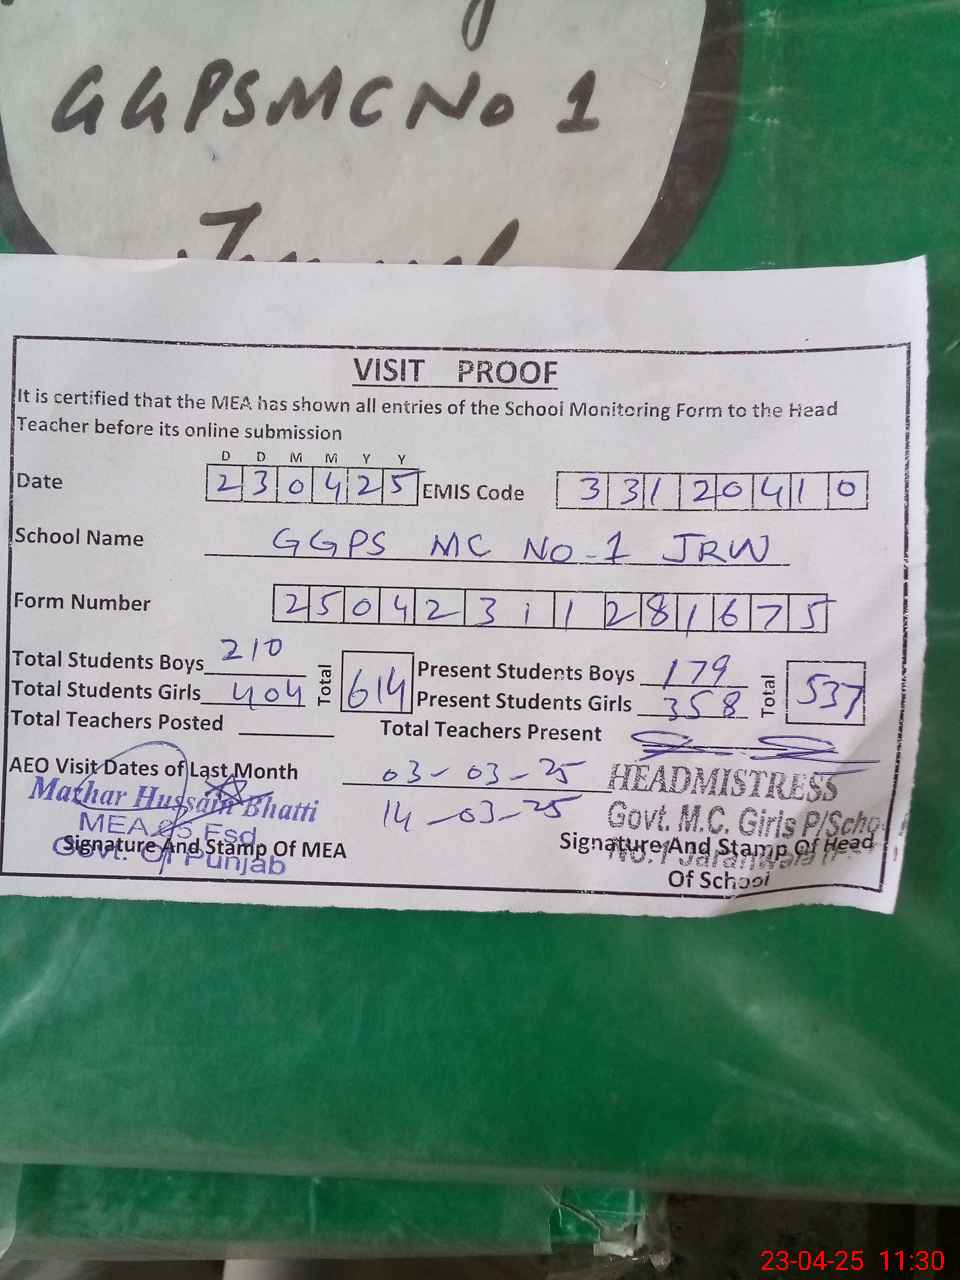 GGPSMC No 1
VISIT PROOF
It is certified that the MEA has shown all entries of the School Monitoring Form to the Head
Teacher before its online submission
D D M M Y Y
Date 2 3 0 4 2 5 EMIS Code 3 3 1 2 0 4 1 0
School Name GGPS MC NO-1 JRW
Form Number 2 5 0 4 2 3 1 1 2 8 1 6 7 5
Total Students Boys 210 Total 614 Present Students Boys 179 Total 537
Total Students Girls 404 Present Students Girls 358
Total Teachers Posted Total Teachers Present
AEO Visit Dates of Last Month 03-03-25 HEADMISTRESS
Mathar Hussain Bhatti 14-03-25 Govt. M.C. Girls P/Scho
MEA 05 Fsd
Signature And Stamp Of MEA Signature And Stamp Of Head
Govt. Of Punjab No.1 Jaranwala
Of School
23-04-25 11:30